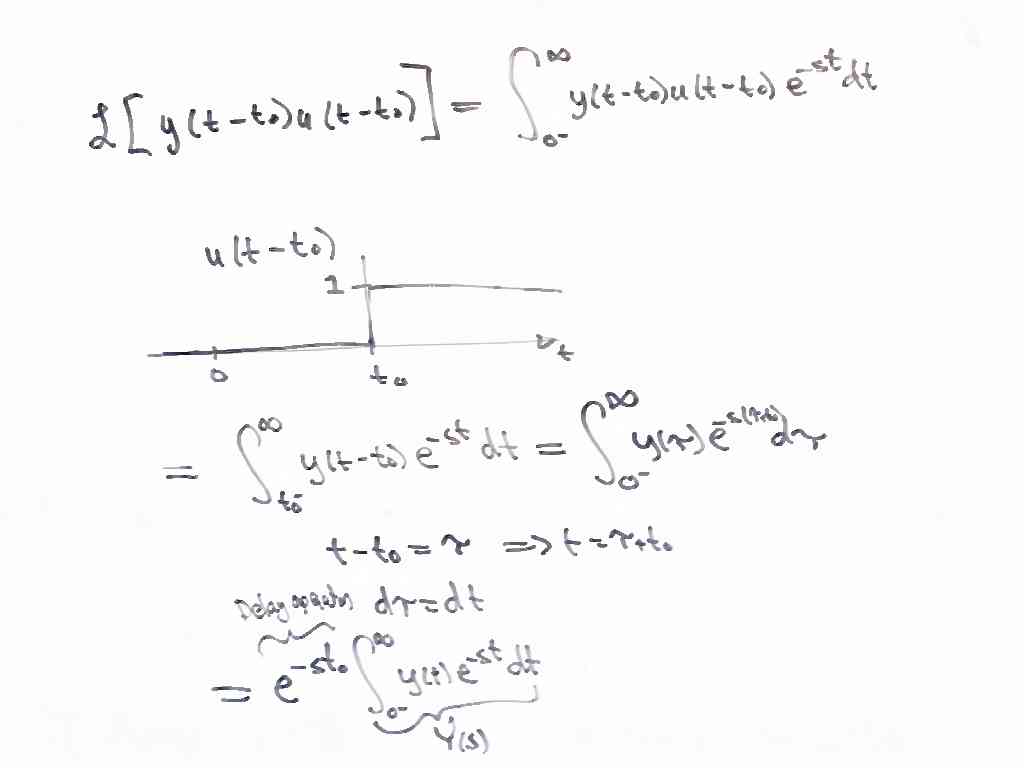 ℒ[y(t-t₀)u(t-t₀)] = ∫₀₋^∞ y(t-t₀)u(t-t₀) e^{-st} dt
u(t-t₀)
1
0 t₀ t
= ∫_{t₀⁻}^∞ y(t-t₀) e^{-st} dt = ∫_{0⁻}^∞ y(τ) e^{-s(τ+t₀)} dτ
t-t₀ = τ => t = τ+t₀
Delay operator dτ = dt
= e^{-st₀} ∫_{0⁻}^∞ y(t) e^{-st} dt
Y(s)